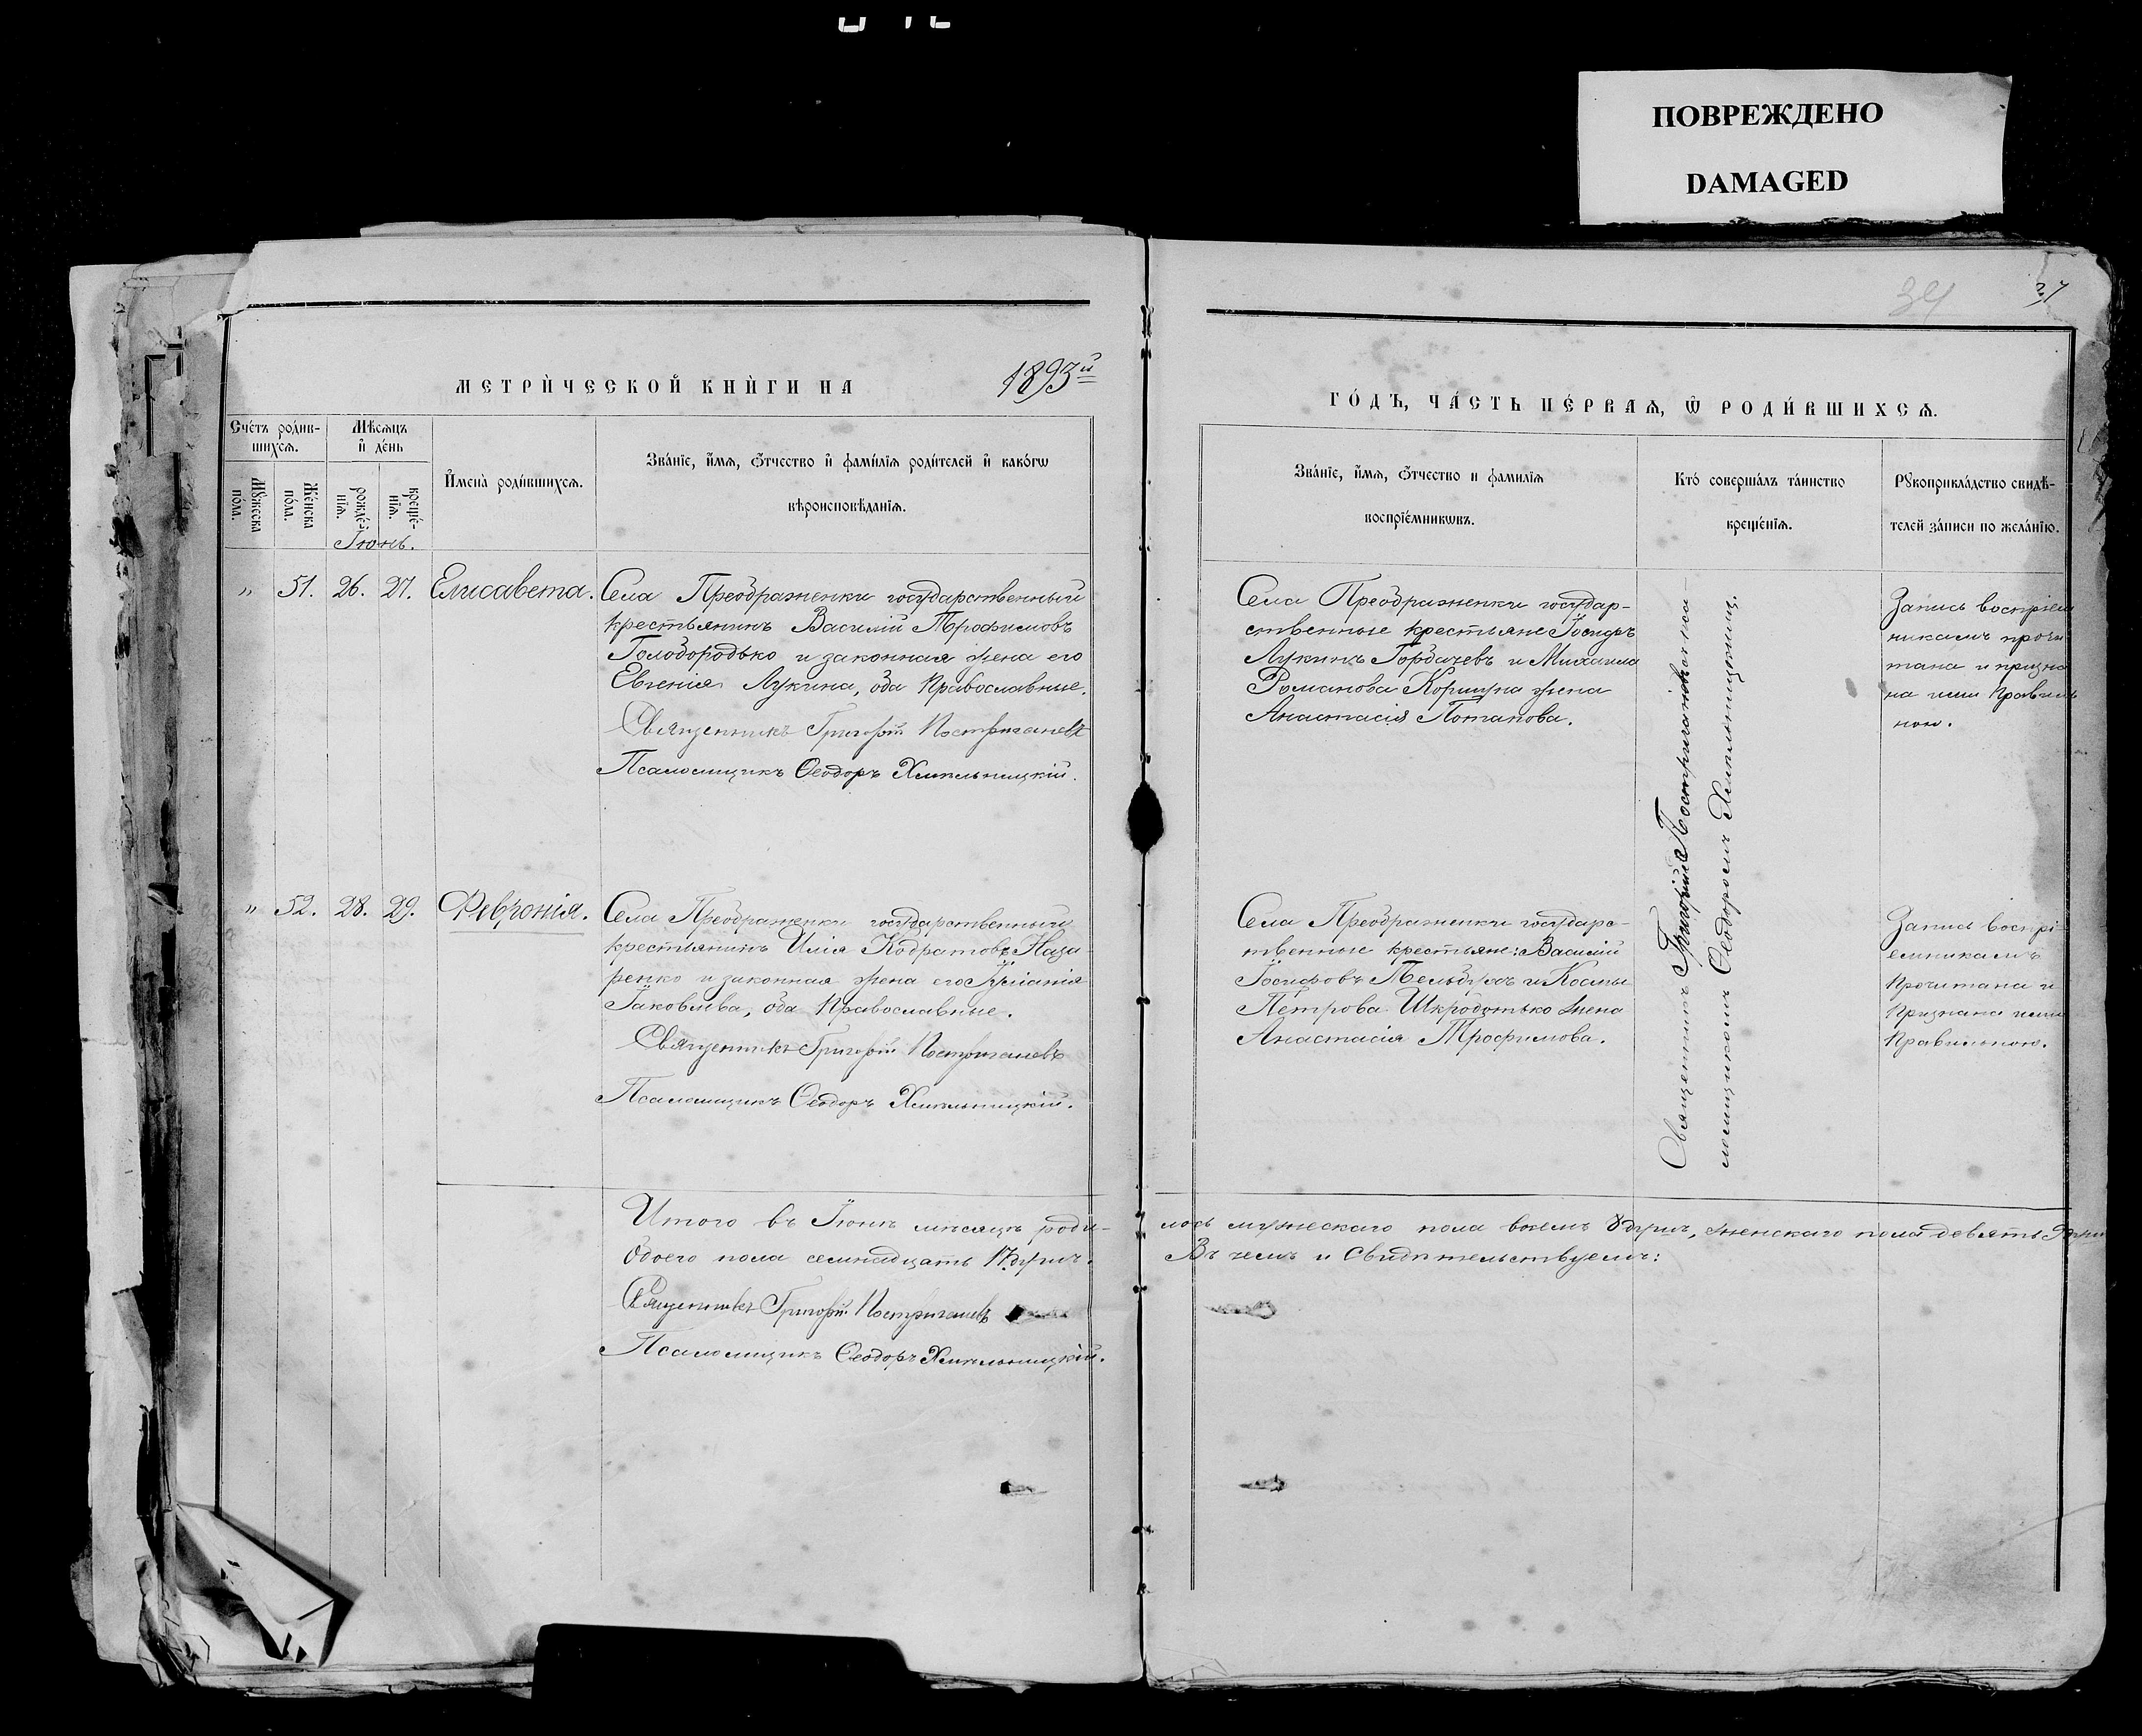 ПОВРЕЖДЕНО
DAMAGED
34
МЕТРИ́ЧЕСКОЙ КНИ́ГИ НА 1893й
ГО́ДЪ, ЧА́СТЬ ПЕ́РВАѦ, Ѡ҆ РОДИ́ВШИХСѦ.
Сче́тъ роди́в-
шихсѧ.
Мꙋ́жеска по́ла.
Же́нска по́ла.
Мѣ́сѧцъ
и҆ де́нь
рожде́-
нїѧ.
креще́-
нїѧ.
Іюнь.
И҆мена̀ роди́вшихсѧ.
Зва́нїе, и҆́мѧ, ѻ҆́тчество и҆ фами́лїѧ роди́телей и҆ како́гѡ
вѣроисповѣ́данїѧ.
Зва́нїе, и҆́мѧ, ѻ҆́тчество и фами́лїѧ
воспрїе́мникѡвъ.
Кто́ соверша́лъ та́инство
креще́нїѧ.
Рꙋкоприкла́дство свидѣ́-
телей за́писи по жела́нїю.
„ 51. 26. 27. Елисавета.
Села Преображенки государственный
крестьянинъ Василій Трофимовъ
Голобородько и законная жена его
Евгенія Лукина, оба Православные.
Священникъ Григорій Постригачевъ
Псаломщикъ Ѳеодоръ Хмельницкій.
Села Преображенки государ-
ственные крестьяне Іосифъ
Лукинъ Горбачевъ и Михаила
Романова Коршуна жена
Анастасія Потапова.
Священникъ Григорій Постригачевъ
Ѳеодоромъ Хмельницкимъ.
Запись воспріем
никамъ прочи
тана и призна
на ими Правиль
ною.
„ 52. 28. 29. Февронія.
Села Преображенки государственный
крестьянинъ Илія Кодратовъ Наза
ренко и законная жена его Іуліанія
Іаковлева, оба Православные.
Священникъ Григорій Постригачевъ
Псаломщикъ Ѳеодоръ Хмельницкій.
Села Преображенки государс-
твенные крестьяне: Василій
Іосифовъ и Космы
Петрова жена
Анастасія Трофимова.
Запись воспрі-
емникамъ
Прочитана и
Признана ими
Правильною.
Итого въ Іюнѣ мѣсяцѣ роди-
лось мужескаго пола восемь 8 душъ, женскаго пола девять 9 душ
Обоего пола семнадцать 17 душъ.
Въ чемъ и Свидѣтельствуемъ:
Священникъ Григорій Постригачевъ
Псаломщикъ Ѳеодоръ Хмельницкій.